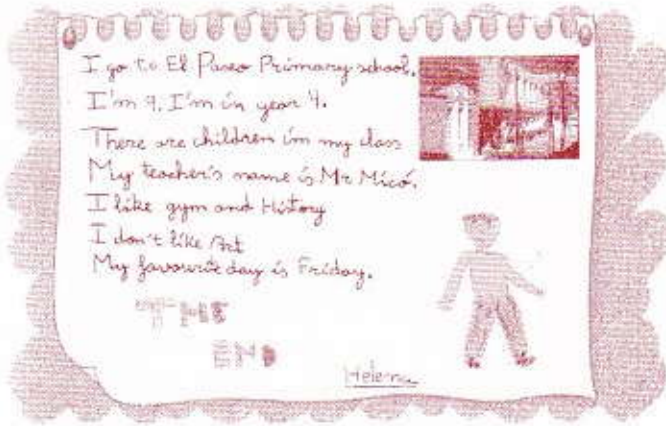 I go to El Paseo Primary school.
I'm 9. I'm in year 4.
There are children in my class
My teacher's name is Mr Micó.
I like gym and History
I don't like Art
My favourite day is Friday.
THE
END
Helena